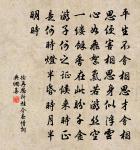 平生不會相思才會相
思便害相思身似浮雲
心如飛絮氣若游絲空
一縷餘香在此盼千金
游子何之證候來時正
是何時燈半昏時月半
明時
徐再思折桂令春情